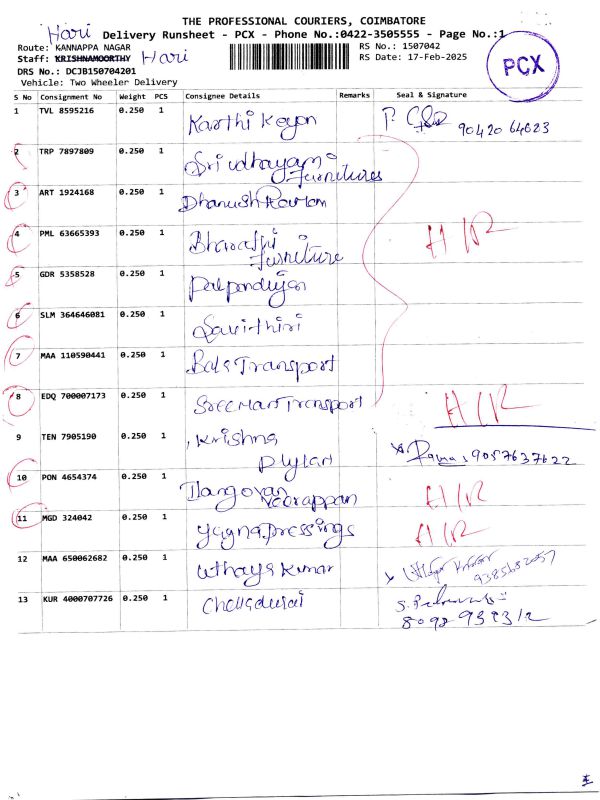 THE PROFESSIONAL COURIERS, COIMBATORE
Hari
Delivery Runsheet - PCX - Phone No.:0422-3505555 - Page No.:1
Route: KANNAPPA NAGAR
RS No.: 1507042
Staff: KRISHNAMOORTHY Hari
RS Date: 17-Feb-2025
PCX
DRS No.: DCJB150704201
Vehicle: Two Wheeler Delivery
S No Consignment No Weight PCS Consignee Details Remarks Seal & Signature
1 TVL 8595216 0.250 1 Karthi Keyan 9042064623
2 TRP 7897809 0.250 1 Sri udhayam
Furnitures
3 ART 1924168 0.250 1 Dhanush
4 PML 63665393 0.250 1 Bharathi H/R
Furniture
5 GDR 5358528 0.250 1 Palpandiyan
6 SLM 364646081 0.250 1 Savithiri
7 MAA 110590441 0.250 1 Bala Transport
8 EDQ 700007173 0.250 1 Sree Mari Transport H/R
9 TEN 7905190 0.250 1 Krishna 9057637622
10 PON 4654374 0.250 1 Ilangovan H/R
Veerappan
11 MGD 324042 0.250 1 Yagna Pressings H/R
12 MAA 650062682 0.250 1 Uthaya Kumar
13 KUR 4000707726 0.250 1 Chelladurai